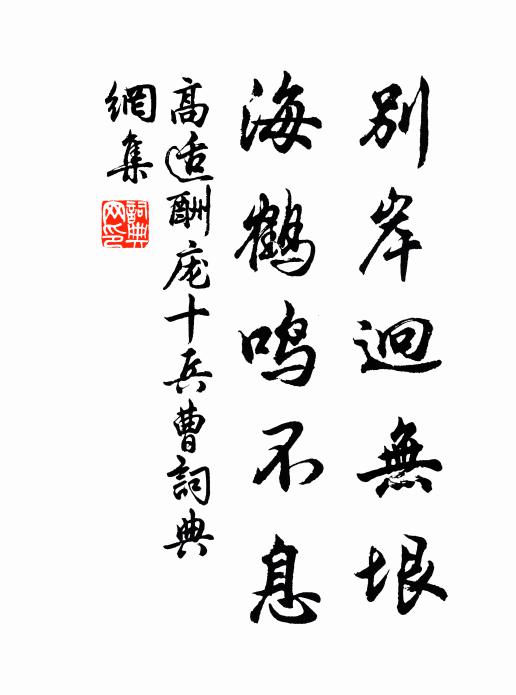 別岸迥無垠
海鶴鳴不息
高适酬庞十兵曹詞典
網集
詞典網印